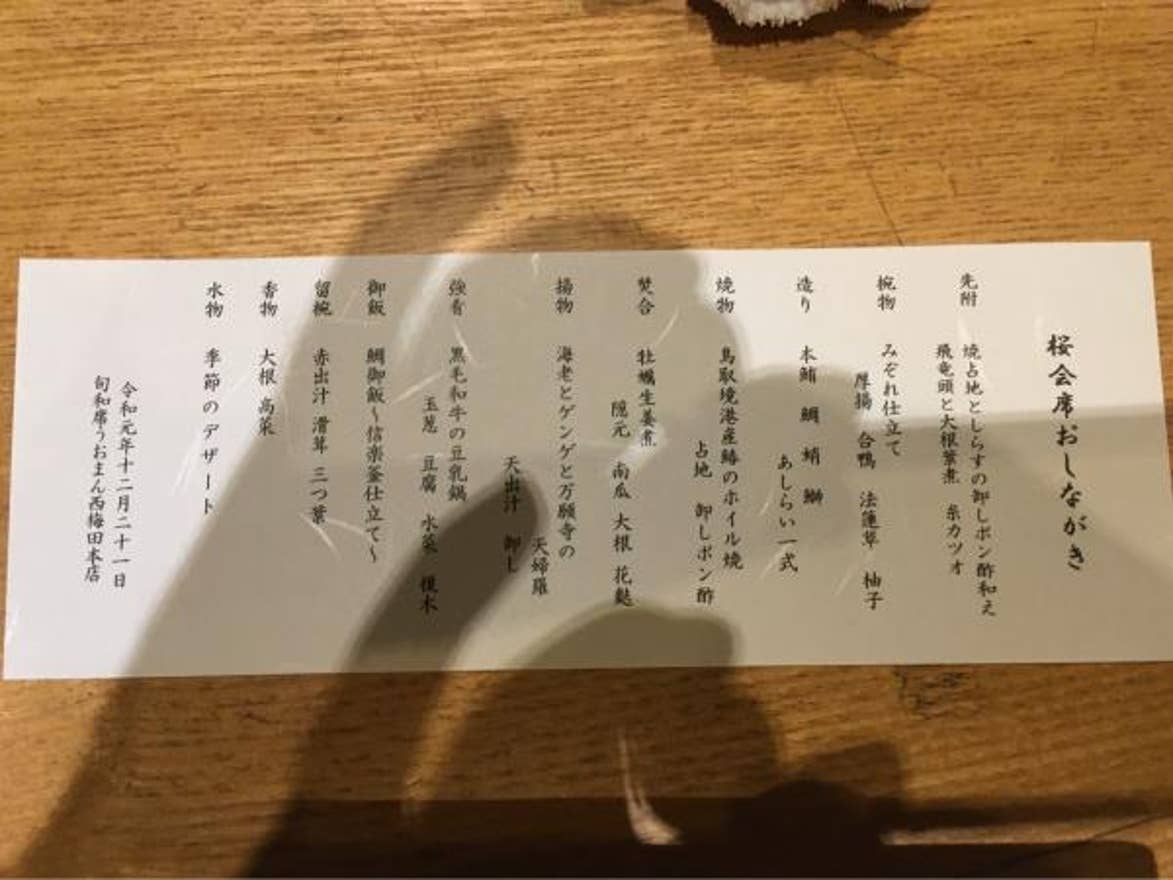 桜会席おしながき
先附 焼占地としらすの卸しポン酢和え
飛竜頭と大根葉煮 糸カツオ
椀物 みぞれ仕立て
厚揚 合鴨 法蓮草 柚子
造り 本鮪 鯛 蛸 鰤
あしらい一式
焼物 鳥取境港産鰆のホイル焼
占地 卸しポン酢
焚合 牡蠣生姜煮
隠元 南瓜 大根 花麩
揚物 海老とゲンゲと万願寺の
天婦羅
天出汁 卸し
強肴 黒毛和牛の豆乳鍋
玉葱 豆腐 水菜 榎木
御飯 鯛御飯～信楽釜仕立て～
留椀 赤出汁 滑茸 三つ葉
香物 大根 高菜
水物 季節のデザート
令和元年十二月二十一日
旬和席うおまん西梅田本店